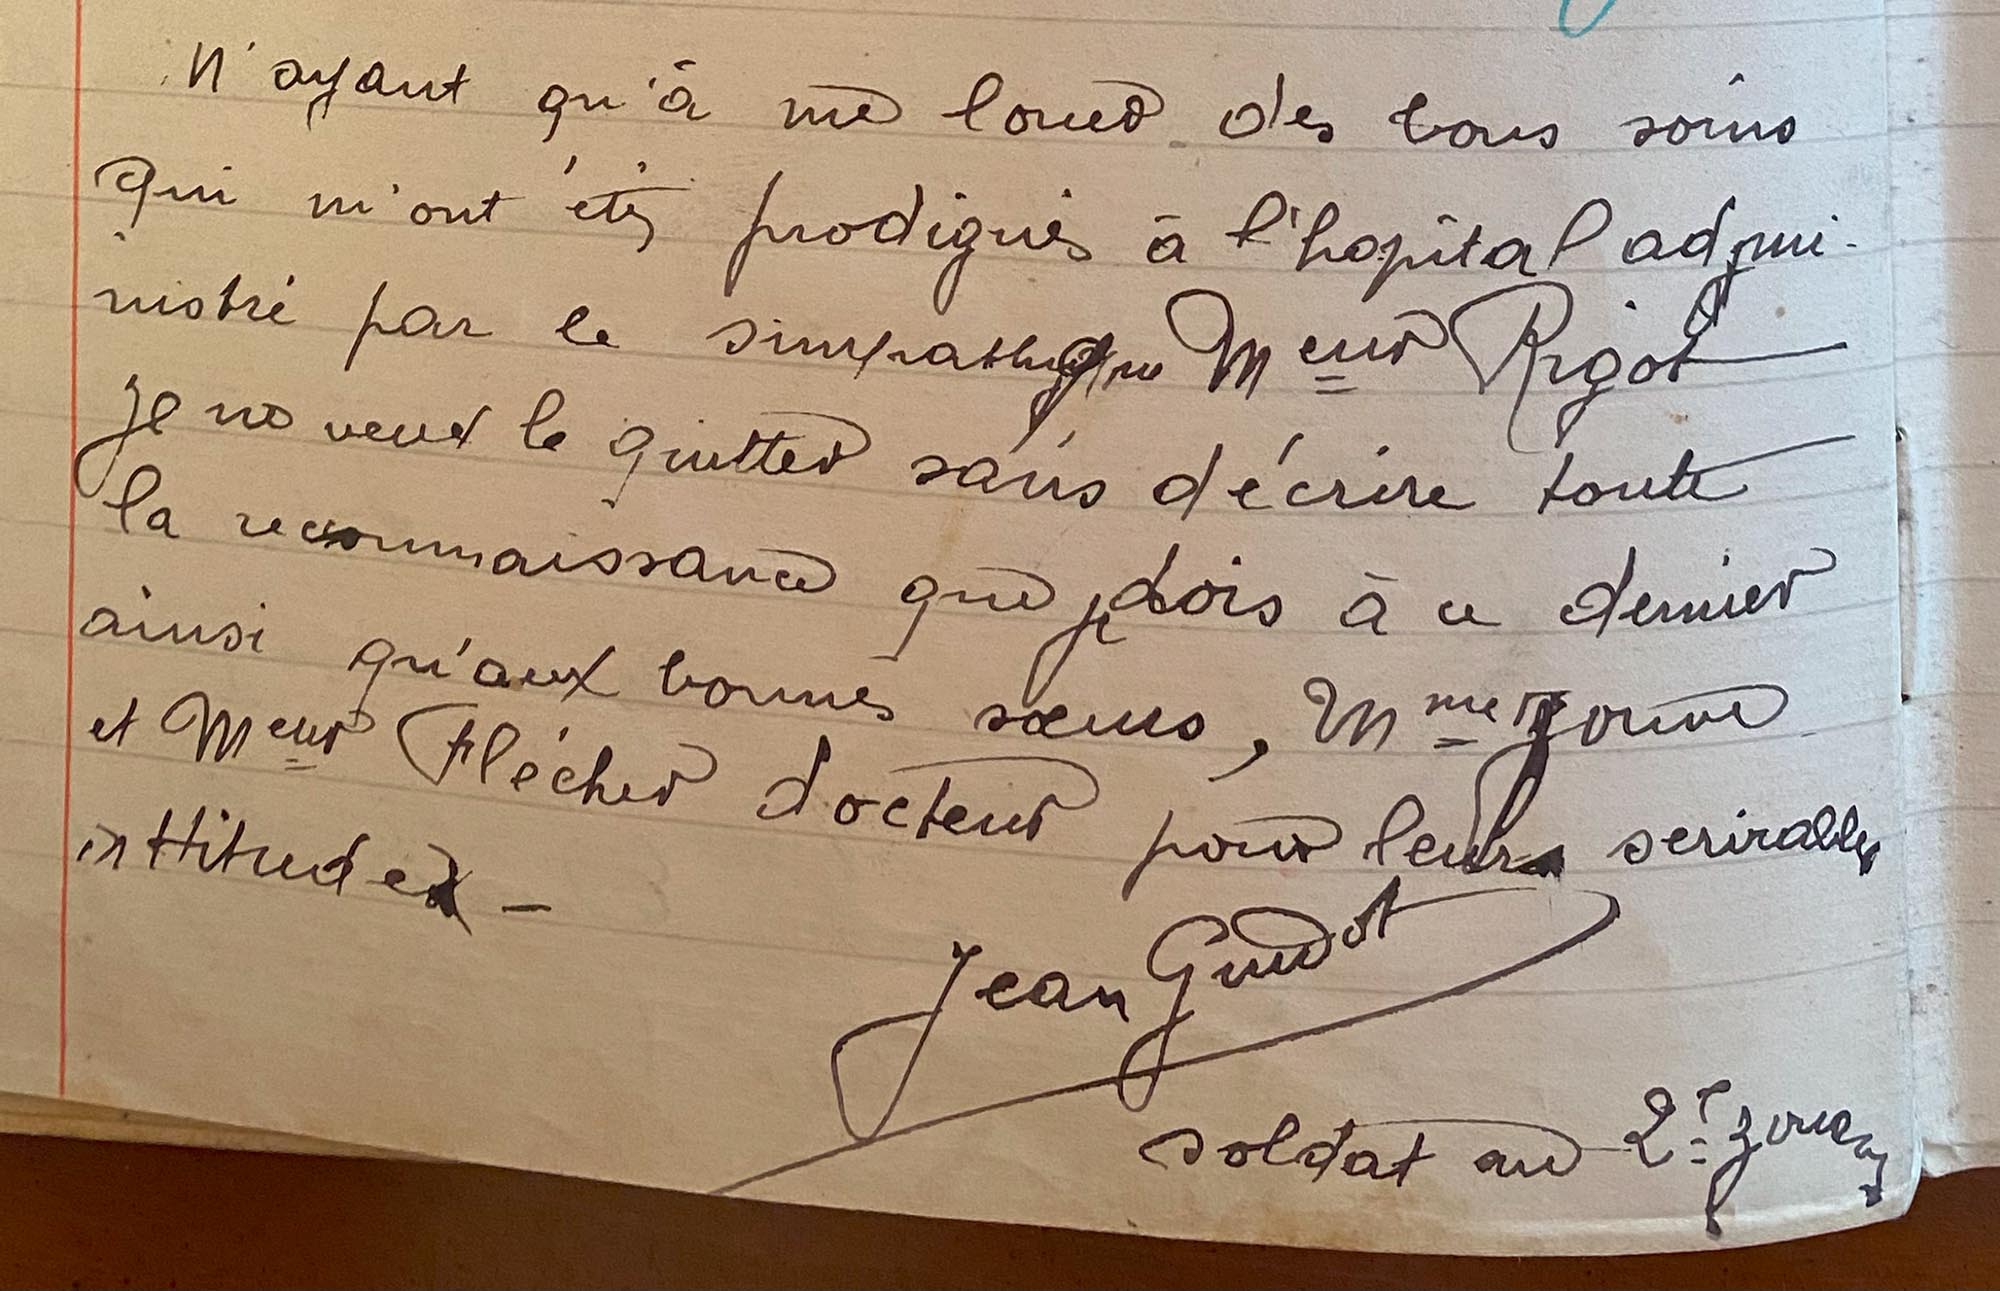 N'ayant qu'à me louer des bons soins
qui m'ont étés prodigués à l'hopital admi-
nistré par le simpathique Meur Rigot
je ne veux le quitter sans décrire toute
la reconnaissance que je dois à ce dernier
ainsi qu'aux bonnes sœurs, Mme Jouve
et Meur Flécher docteur pour leurs
inttitudes –
Jean
soldat au 2e zouaves